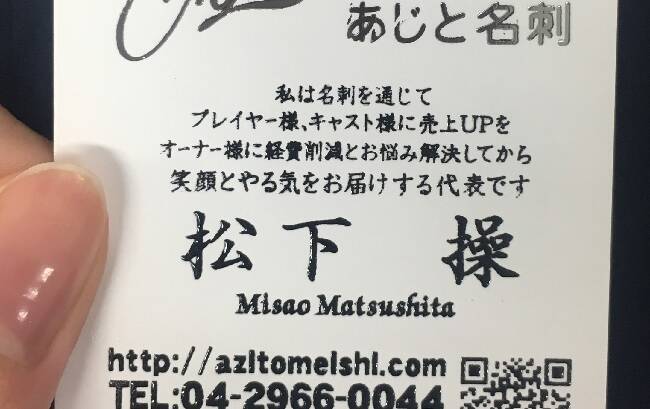 あじと名刺
私は名刺を通じて
プレイヤー様、キャスト様に売上UPを
オーナー様に経費削減とお悩み解決してから
笑顔とやる気をお届けする代表です
松下 操
Misao Matsushita
http://azitomeishi.com
TEL:04-2966-0044